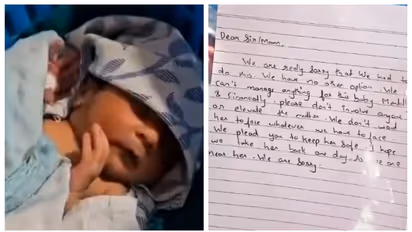 Dear Sir/Mam,
We are really sorry that we had to
do this. We have no other option. We
can't manage anything for this baby
& financially. please don't involve anyone
or elevate the matter. We don't want
her to face whatever we have to face.
We plead you to keep her safe. I hope
we take her back one day.
near her. We are sorry